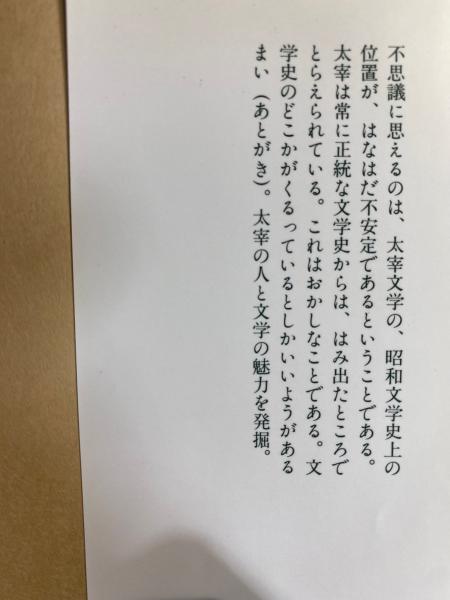 不思議に思えるのは、太宰文学の、昭和文学史上の
位置が、はなはだ不安定であるということである。
太宰は常に正統な文学史からは、はみ出たところで
とらえられている。これはおかしなことである。文
学史のどこかがくるっているとしかいいようがある
まい（あとがき）。太宰の人と文学の魅力を発掘。